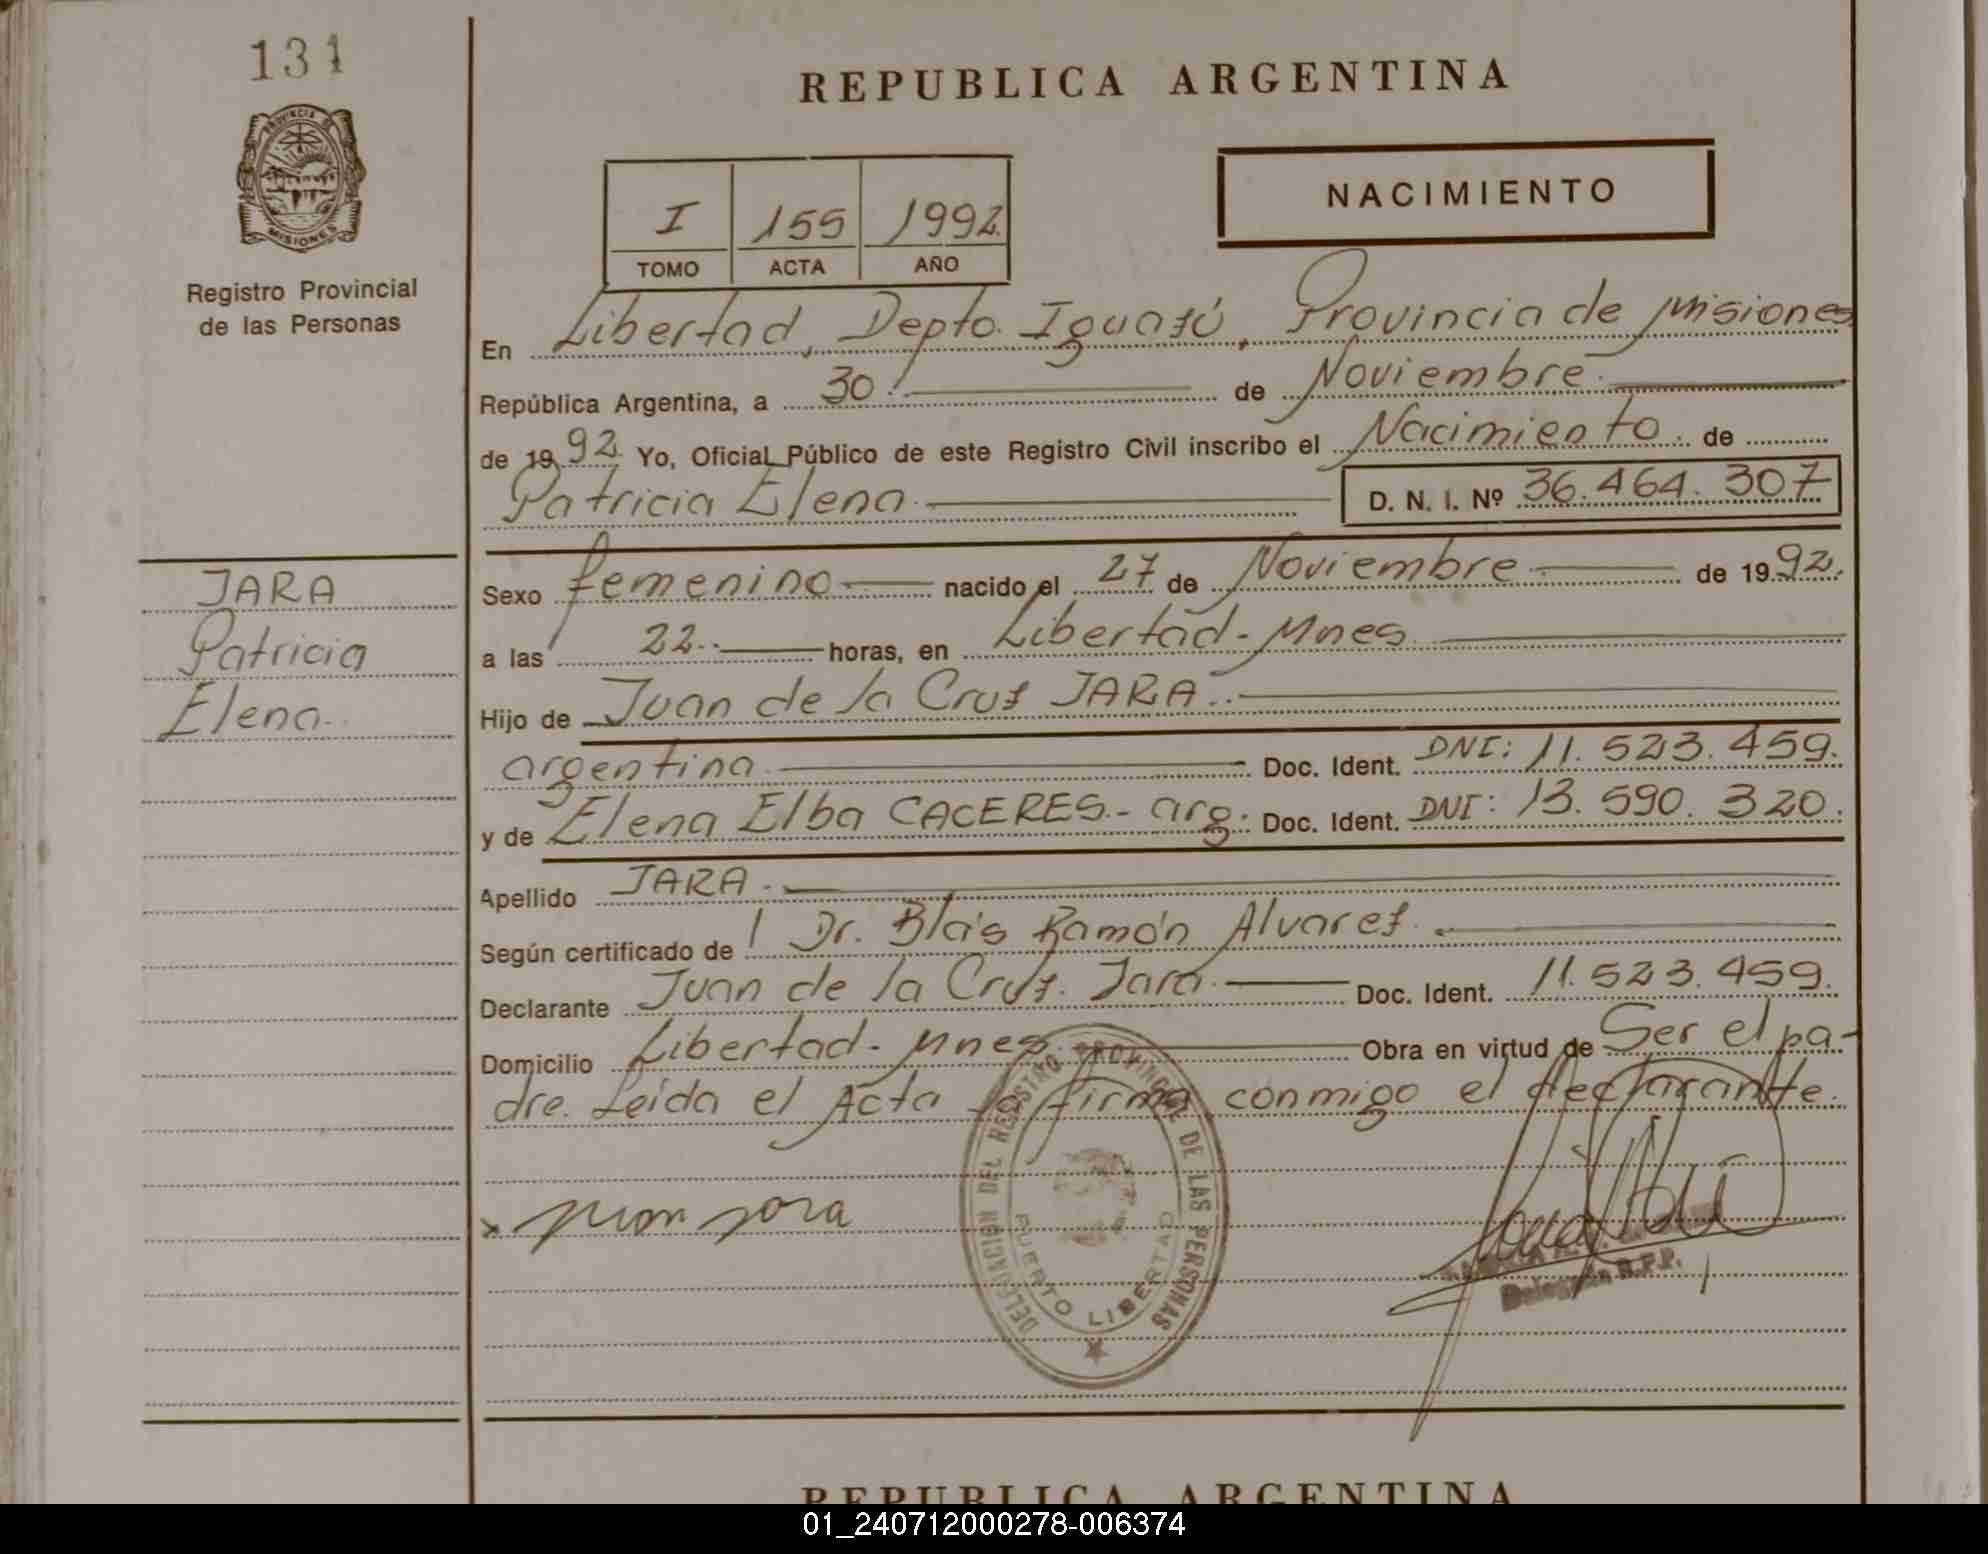 131
PROVINCIA DE
MISIONES
Registro Provincial
de las Personas
REPUBLICA ARGENTINA
I 155 1992.
TOMO ACTA AÑO
NACIMIENTO
En Libertad, Depto. Iguazú, Provincia de Misiones
República Argentina, a 30. de Noviembre.
de 1992. Yo, Oficial Público de este Registro Civil inscribo el Nacimiento. de
Patricia Elena. D. N. I. Nº 36.464.307
JARA
Patricia
Elena.
Sexo femenino nacido el 27 de Noviembre de 1992.
a las 22. horas, en Libertad - Mnes.
Hijo de Juan de la Cruz JARA.
argentina. Doc. Ident. DNI: 11.523.459.
y de Elena Elba CACERES.- arg. Doc. Ident. DNI: 13.590.320.
Apellido JARA.
Según certificado de 1 Dr. Blás Ramón Alvarez.
Declarante Juan de la Cruz. Jara. Doc. Ident. 11.523.459.
Domicilio Libertad - Mnes. Obra en virtud de Ser el pa-
dre. Leída el Acta la firma conmigo el declarante.
x Juan Jara
DELEGACION DEL REGISTRO PROVINCIAL DE LAS PERSONAS
PUERTO LIBERTAD
R.P.P.
REPUBLICA ARGENTINA
01_240712000278-006374